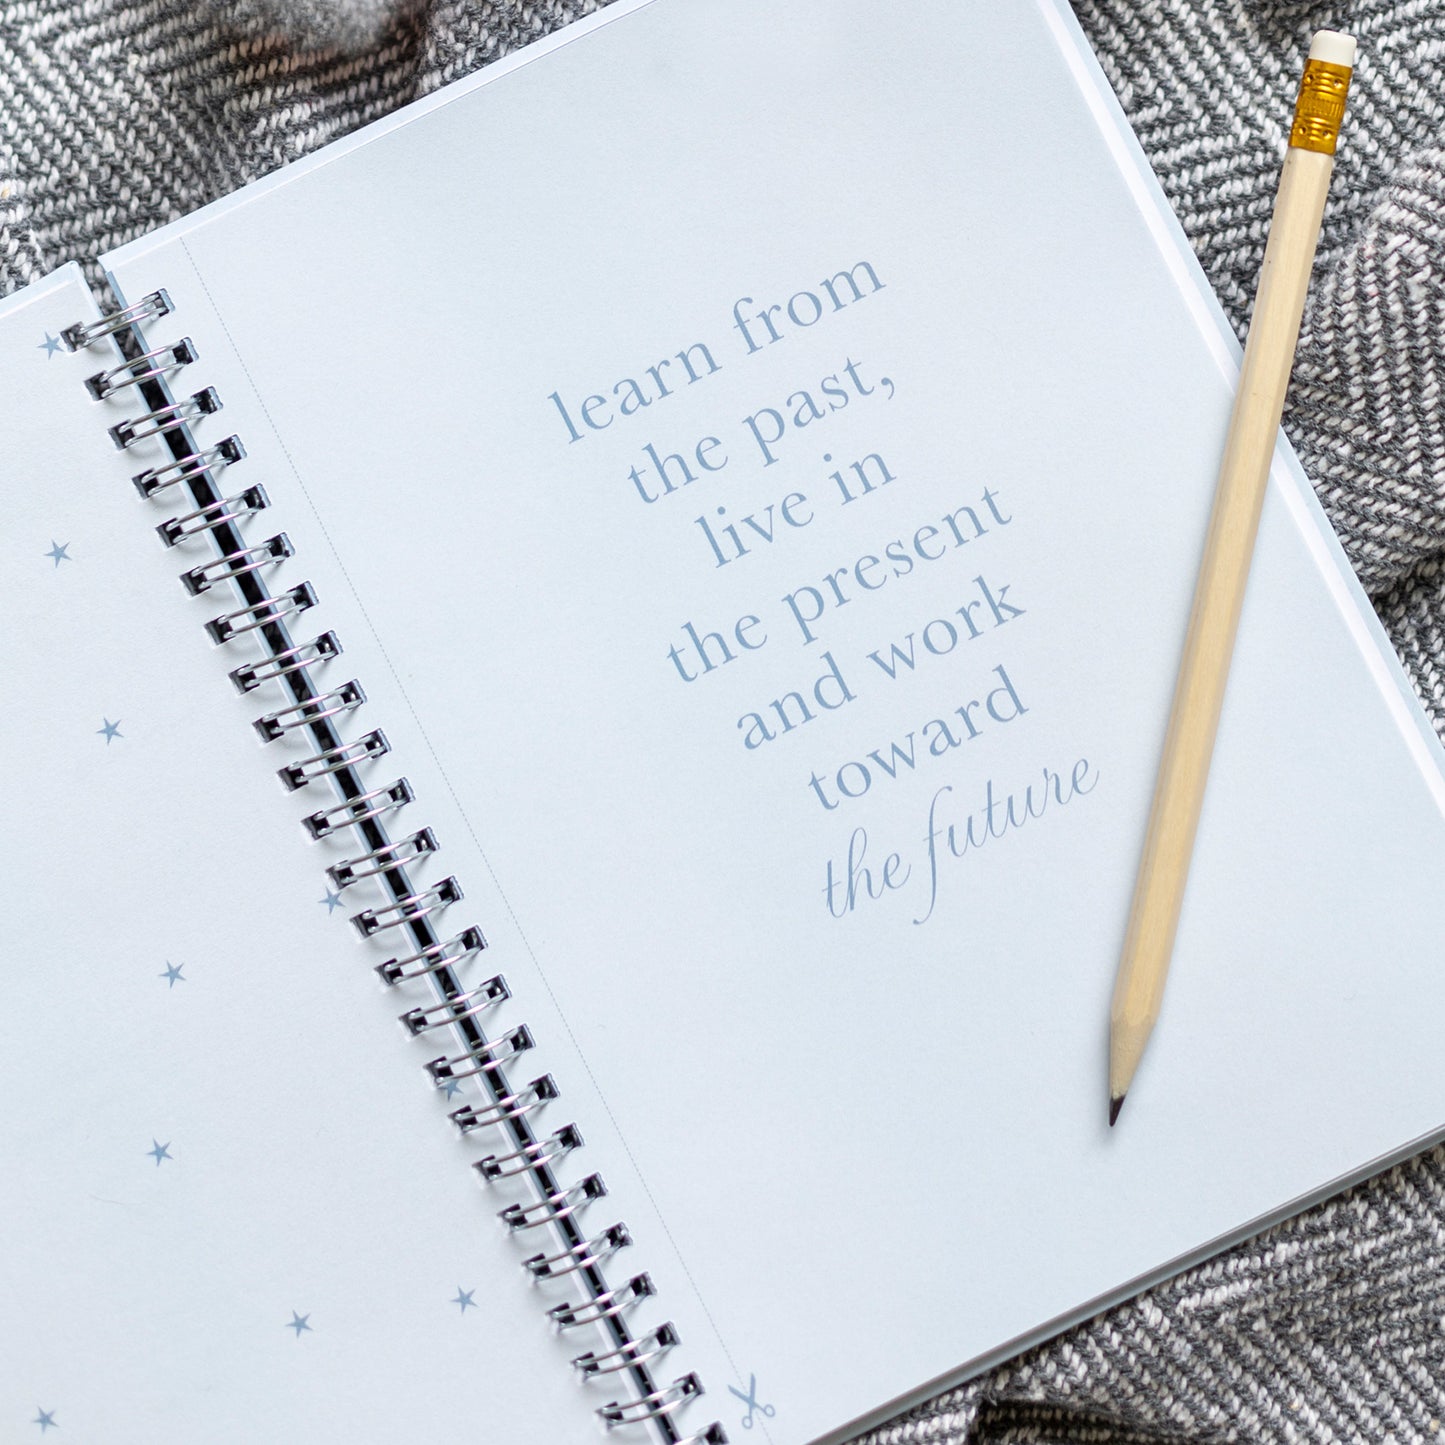 learn from
the past,
live in
the present
and work
toward
the future